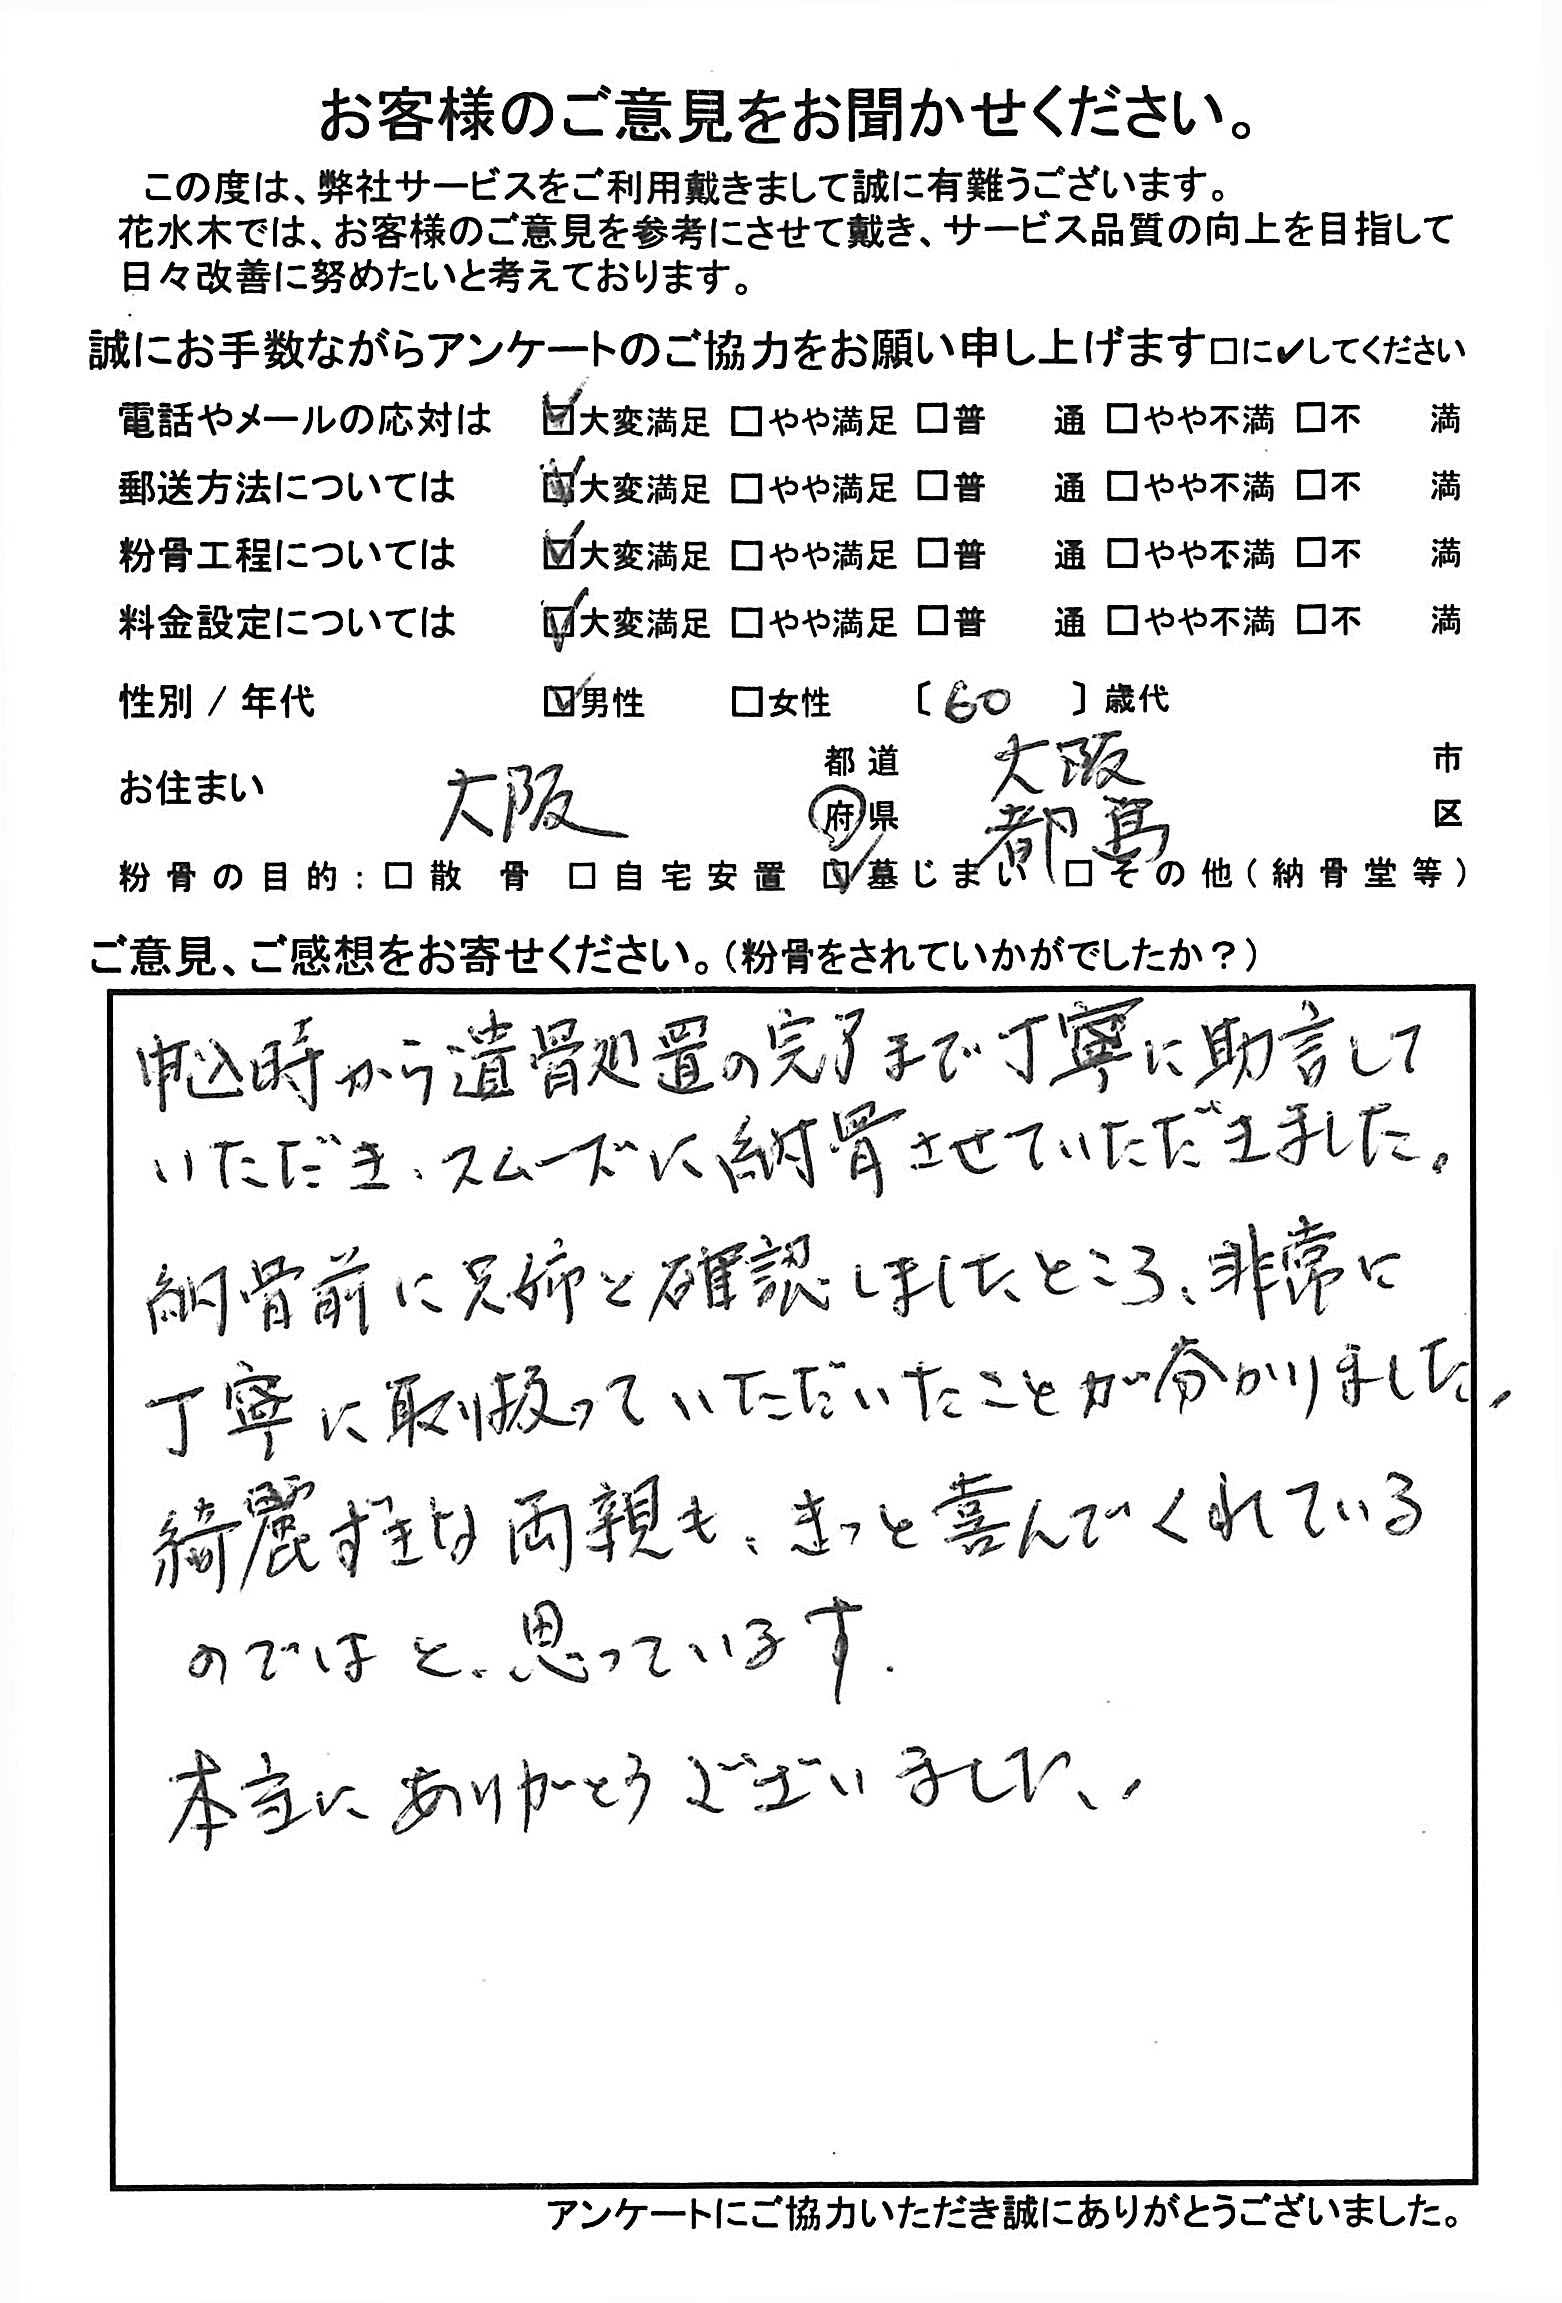 お客様のご意見をお聞かせください。
この度は、弊社サービスをご利用戴きまして誠に有難うございます。
花水木では、お客様のご意見を参考にさせて戴き、サービス品質の向上を目指して
日々改善に努めたいと考えております。
誠にお手数ながらアンケートのご協力をお願い申し上げます□に✔してください
電話やメールの応対は ☑大変満足 □やや満足 □普 通 □やや不満 □不 満
郵送方法については ☑大変満足 □やや満足 □普 通 □やや不満 □不 満
粉骨工程については ☑大変満足 □やや満足 □普 通 □やや不満 □不 満
料金設定については ☑大変満足 □やや満足 □普 通 □やや不満 □不 満
性別 / 年代 ☑男性 □女性 〔 60 〕歳代
お住まい 大阪 都道府県 大阪 市 都島 区
粉骨の目的:□散 骨 □自宅安置 ☑墓じまい □その他(納骨堂等)
ご意見、ご感想をお寄せください。(粉骨をされていかがでしたか?)
申込時から遺骨処置の完了まで丁寧に助言して
いただき、スムーズに納骨させていただきました。
納骨前に兄姉と確認しましたところ、非常に
丁寧に取り扱っていただいたことが分かりました。
綺麗ずきな両親も、きっと喜んでくれている
のではと、思っています。
本当にありがとうございました。
アンケートにご協力いただき誠にありがとうございました。